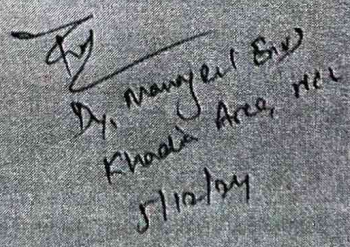 Dy. Manager (Env)
Khadia Area, NCL
5/12/24